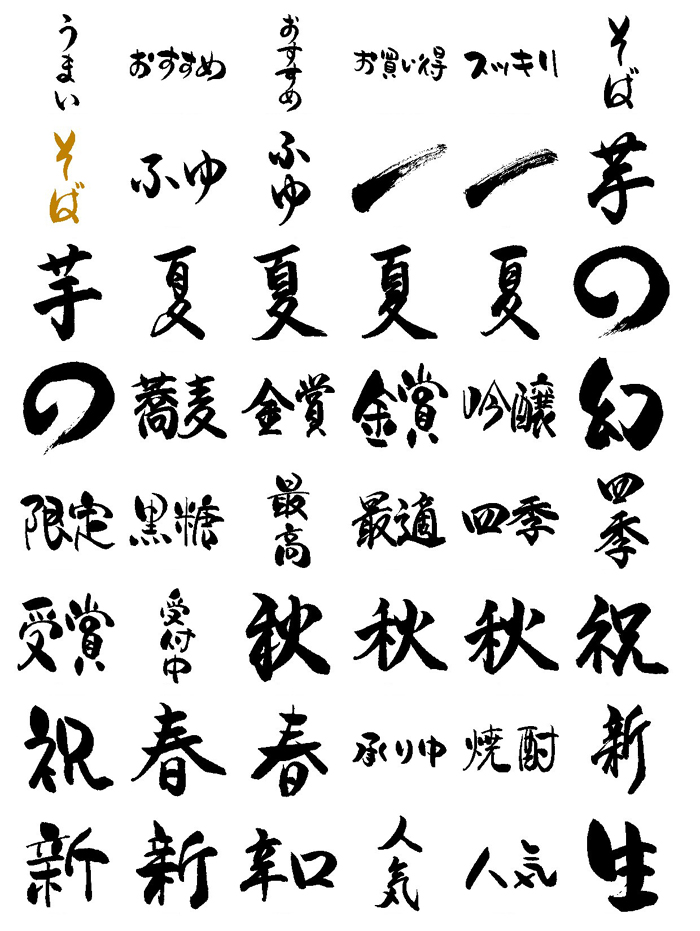 うまい おすすめ おすすめ お買い得 スッキリ そば
そば ふゆ ふゆ 一 一 芋
芋 夏 夏 夏 夏 の
の 蕎麦 金賞 金賞 吟醸 幻
限定 黒糖 最高 最適 四季 四季
受賞 受付中 秋 秋 秋 祝
祝 春 春 承り中 焼酎 新
新 新 辛口 人気 人気 生